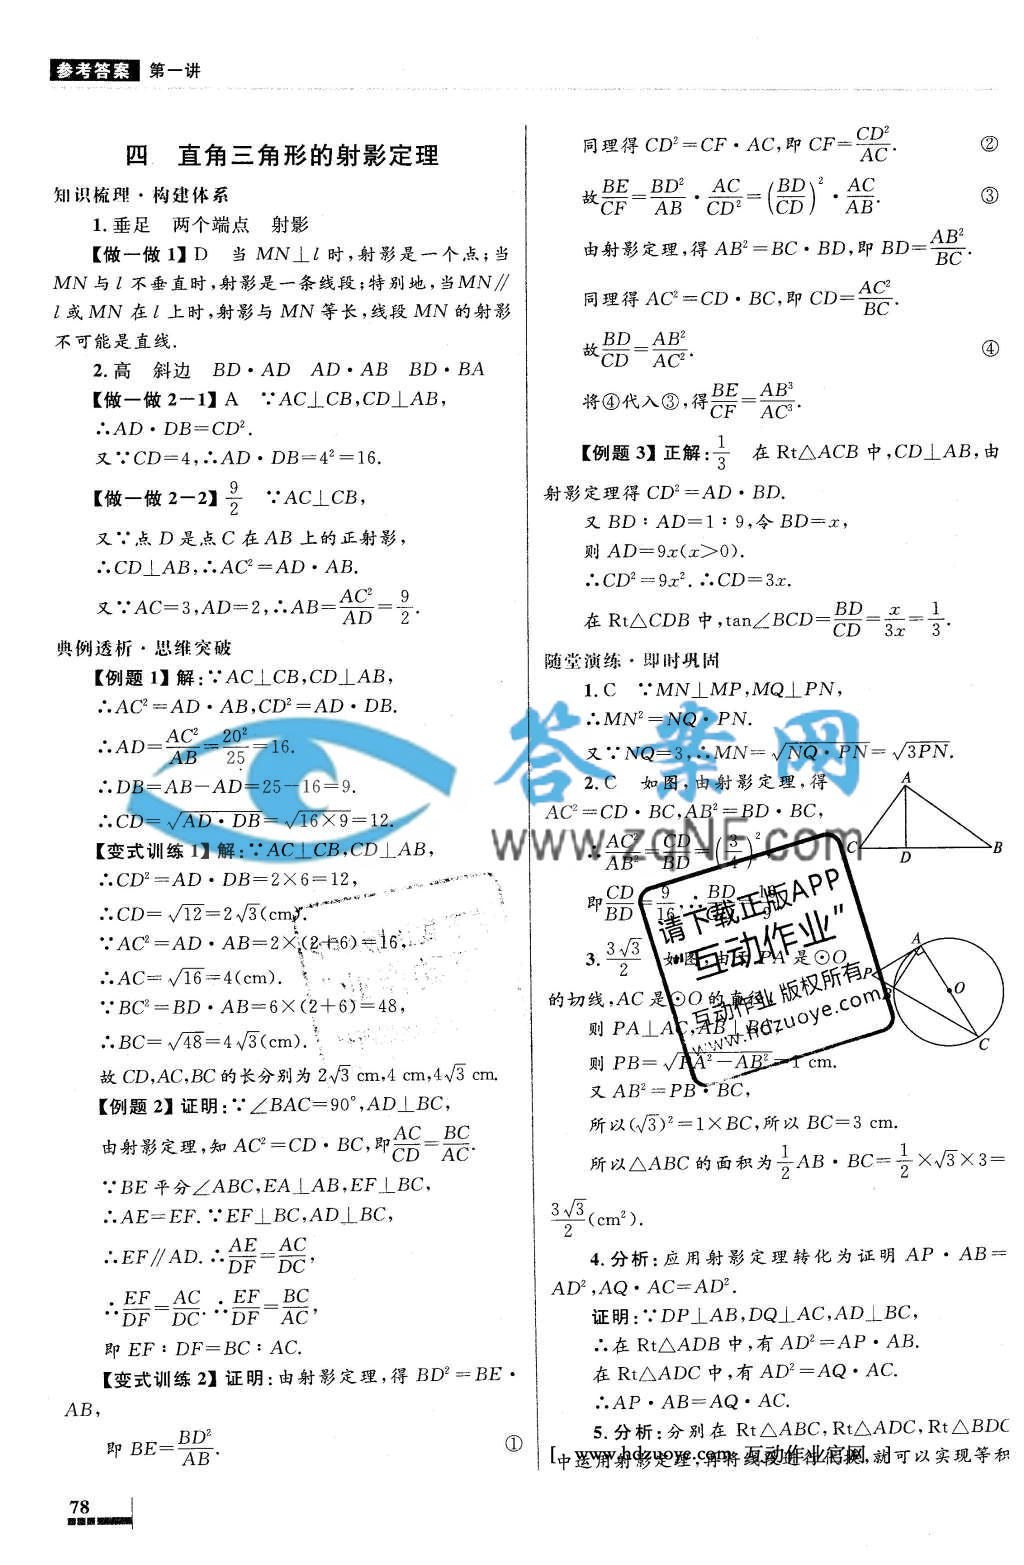 参考答案 第一讲
四 直角三角形的射影定理
知识梳理·构建体系
1.垂足 两个端点 射影
【做一做1】D 当MN⊥l时,射影是一个点;当
MN与l不垂直时,射影是一条线段;特别地,当MN∥
l或MN在l上时,射影与MN等长,线段MN的射影
不可能是直线.
2.高 斜边 BD·AD AD·AB BD·BA
【做一做2-1】A ∵AC⊥CB,CD⊥AB,
∴AD·DB=CD².
又∵CD=4,∴AD·DB=4²=16.
【做一做2-2】9/2 ∵AC⊥CB,
又∵点D是点C在AB上的正射影,
∴CD⊥AB,∴AC²=AD·AB.
又∵AC=3,AD=2,∴AB=AC²/AD=9/2.
典例透析·思维突破
【例题1】解:∵AC⊥CB,CD⊥AB,
∴AC²=AD·AB,CD²=AD·DB.
∴AD=AC²/AB=20²/25=16.
∴DB=AB-AD=25-16=9.
∴CD=√(AD·DB)=√(16×9)=12.
【变式训练1】解:∵AC⊥CB,CD⊥AB,
∴CD²=AD·DB=2×6=12,
∴CD=√12=2√3(cm).
∵AC²=AD·AB=2×(2+6)=16,
∴AC=√16=4(cm).
∵BC²=BD·AB=6×(2+6)=48,
∴BC=√48=4√3(cm).
故CD,AC,BC的长分别为2√3 cm,4 cm,4√3 cm.
【例题2】证明:∵∠BAC=90°,AD⊥BC,
由射影定理,知AC²=CD·BC,即AC/CD=BC/AC.
∵BE平分∠ABC,EA⊥AB,EF⊥BC,
∴AE=EF.∵EF⊥BC,AD⊥BC,
∴EF∥AD.∴AE/DF=AC/DC,
∴EF/DF=AC/DC.∴EF/DF=BC/AC,
即EF∶DF=BC∶AC.
【变式训练2】证明:由射影定理,得BD²=BE·
AB,
即BE=BD²/AB. ①
同理得CD²=CF·AC,即CF=CD²/AC. ②
故BE/CF=BD²/AB·AC/CD²=(BD/CD)²·AC/AB. ③
由射影定理,得AB²=BC·BD,即BD=AB²/BC.
同理得AC²=CD·BC,即CD=AC²/BC.
故BD/CD=AB²/AC². ④
将④代入③,得BE/CF=AB³/AC³.
【例题3】正解:1/3 在Rt△ACB中,CD⊥AB,由
射影定理得CD²=AD·BD.
又BD∶AD=1∶9,令BD=x,
则AD=9x(x>0).
∴CD²=9x².∴CD=3x.
在Rt△CDB中,tan∠BCD=BD/CD=x/3x=1/3.
随堂演练·即时巩固
1.C ∵MN⊥MP,MQ⊥PN,
∴MN²=NQ·PN.
又∵NQ=3,∴MN=√(NQ·PN)=√(3PN).
2.C 如图,由射影定理,得
AC²=CD·BC,AB²=BD·BC,
∴AC²/AB²=CD/BD=(3/4)²
即CD/BD=9/16,∴BD
A
C
D
B
3.3√3/2 如图,由于PA是⊙O
的切线,AC是⊙O的直径,
则PA⊥AC,AB⊥BC,
则PB=√(PA²-AB²)=1 cm.
又AB²=PB·BC,
所以(√3)²=1×BC,所以BC=3 cm.
所以△ABC的面积为1/2AB·BC=1/2×√3×3=
3√3/2(cm²).
A
P
B
O
C
4.分析:应用射影定理转化为证明AP·AB=
AD²,AQ·AC=AD².
证明:∵DP⊥AB,DQ⊥AC,AD⊥BC,
∴在Rt△ADB中,有AD²=AP·AB.
在Rt△ADC中,有AD²=AQ·AC.
∴AP·AB=AQ·AC.
5.分析:分别在Rt△ABC,Rt△ADC,Rt△BDC
中运用射影定理,再将线段进行代换,就可以实现等积
[ www.hdzuoye.com 互动作业官网 ]
78
答案网
www.zqNF.com
请下载正版APP
"互动作业"
互动作业 版权所有
www.hdzuoye.com